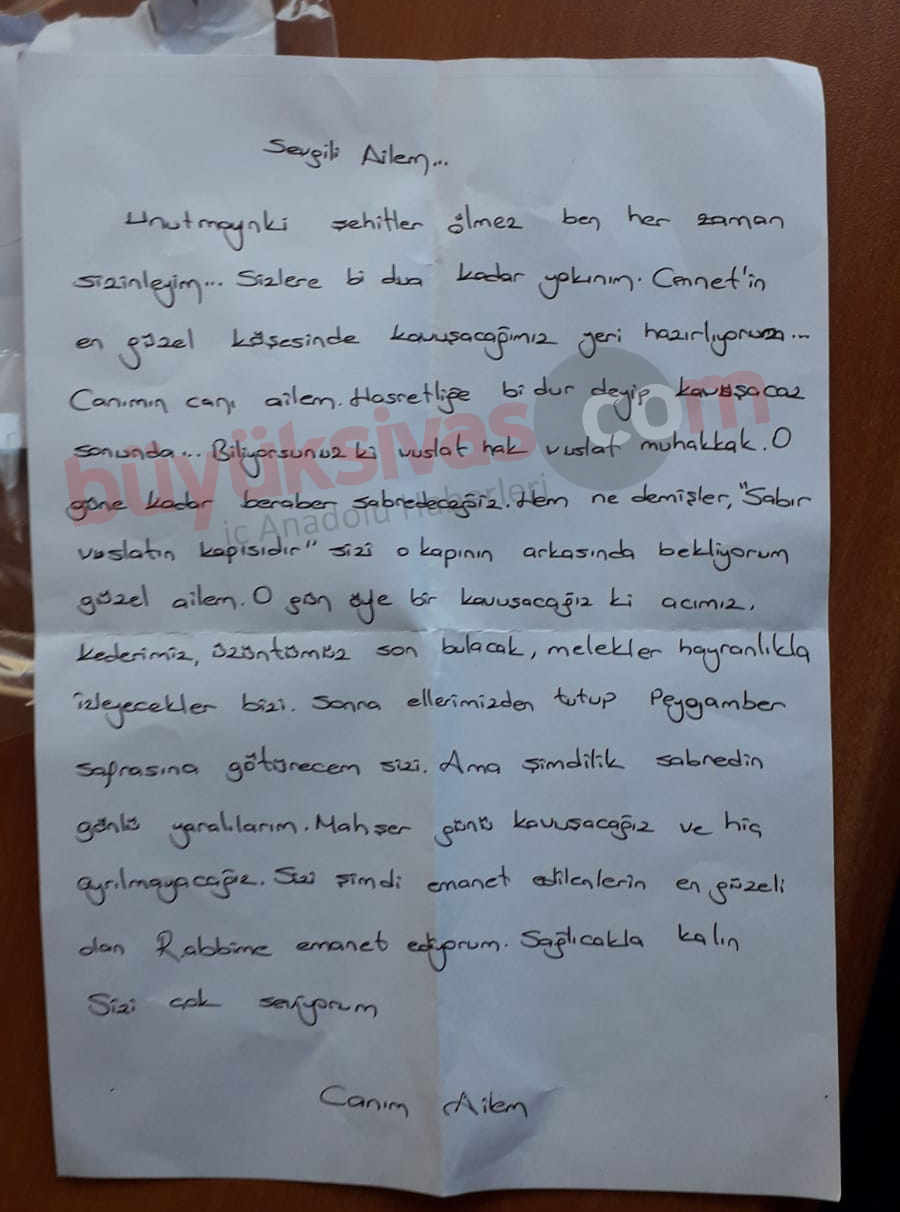 Sevgili Ailem...
Unutmaynki şehitler ölmez ben her zaman
sizinleyim... Sizlere bi dua kadar yakınım. Cennet'in
en güzel köşesinde kavuşacağımız yeri hazırlıyorum...
Canımın canı ailem. Hasretliğe bi dur deyip kavuşacaz
sonunda... Biliyorsunuz ki vuslat hak vuslat muhakkak. O
güne kadar beraber sabredeceğiz. Hem ne demişler, "Sabır
vuslatın kapısıdır" sizi o kapının arkasında bekliyorum
güzel ailem. O gün öyle bir kavuşacağız ki acımız,
kederimiz, üzüntümüz son bulacak, melekler hayranlıkla
izleyecekler bizi. Sonra ellerimizden tutup Peygamber
safrasına götürecem sizi. Ama şimdilik sabredin
gönlü yaralılarım. Mahşer günü kavuşacağız ve hiç
ayrılmayacağız. Sizi şimdi emanet edilenlerin en güzeli
dan Rabbime emanet ediyorum. Sağlıcakla kalın
Sizi çok seviyorum
Canım Ailem
büyüksivas.com
İç Anadolu Haberleri